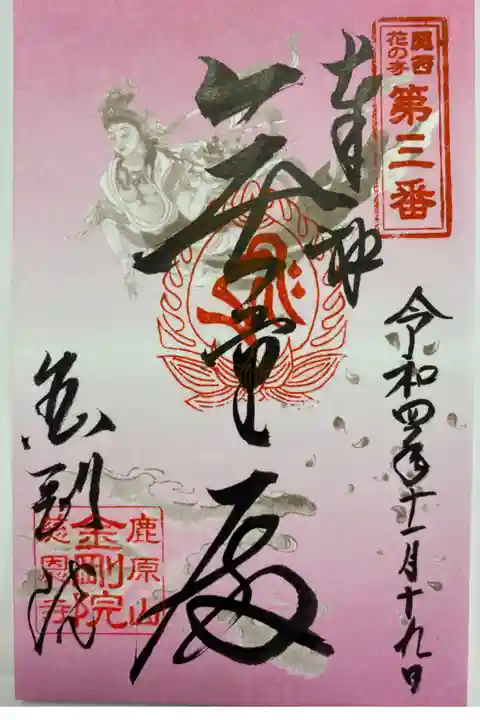 関西
花の寺
第三番
奉拝
令和四年十一月十九日
金剛院
鹿原山
金剛院
慈恩寺